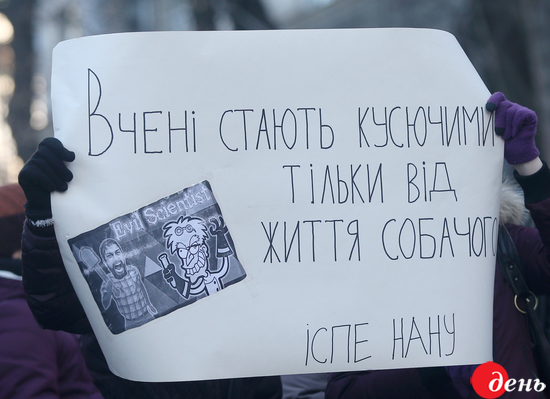 Вчені стають кусючими
тільки від
життя собачого
Evil Scientist
ІСПЕ НАНУ
день